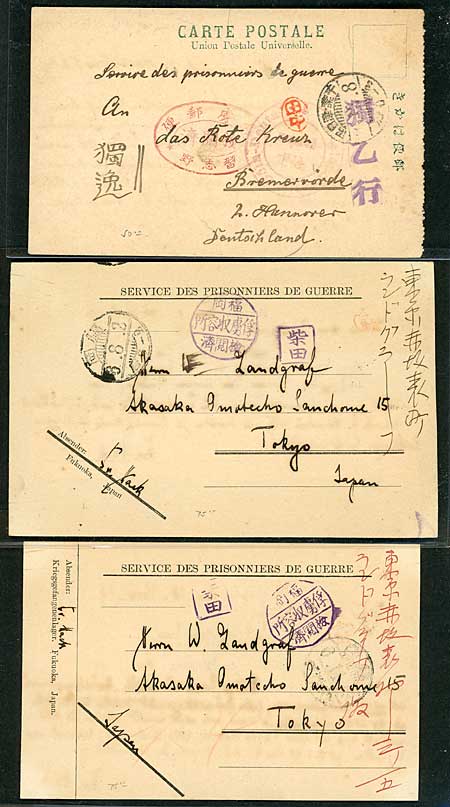 CARTE POSTALE
Union Postale Universelle.
Service des prisonniers de guerre
An
das Rote Kreuz
Bremervörde
Hannover
Deutschland.
獨逸
獨乙行
きかは便郵
田中
50—
SERVICE DES PRISONNIERS DE GUERRE
福岡
俘虜收容所
檢閲濟
柴田
Herrn W. Landgraf
Akasaka Omotecho Sanchome 15
Tokyo
Japan
Absender:
Fukuoka,
Japan
東京赤坂表町
ランドグラーフ
75—
SERVICE DES PRISONNIERS DE GUERRE
福岡
俘虜收容所
檢閲濟
田
Herrn W. Landgraf
Akasaka Omotecho Sanchome 15
Tokyo
Japan
Absender:
Kriegsgefangenenlager: Fukuoka, Japan.
東京赤坂表町三ノ一五
75—